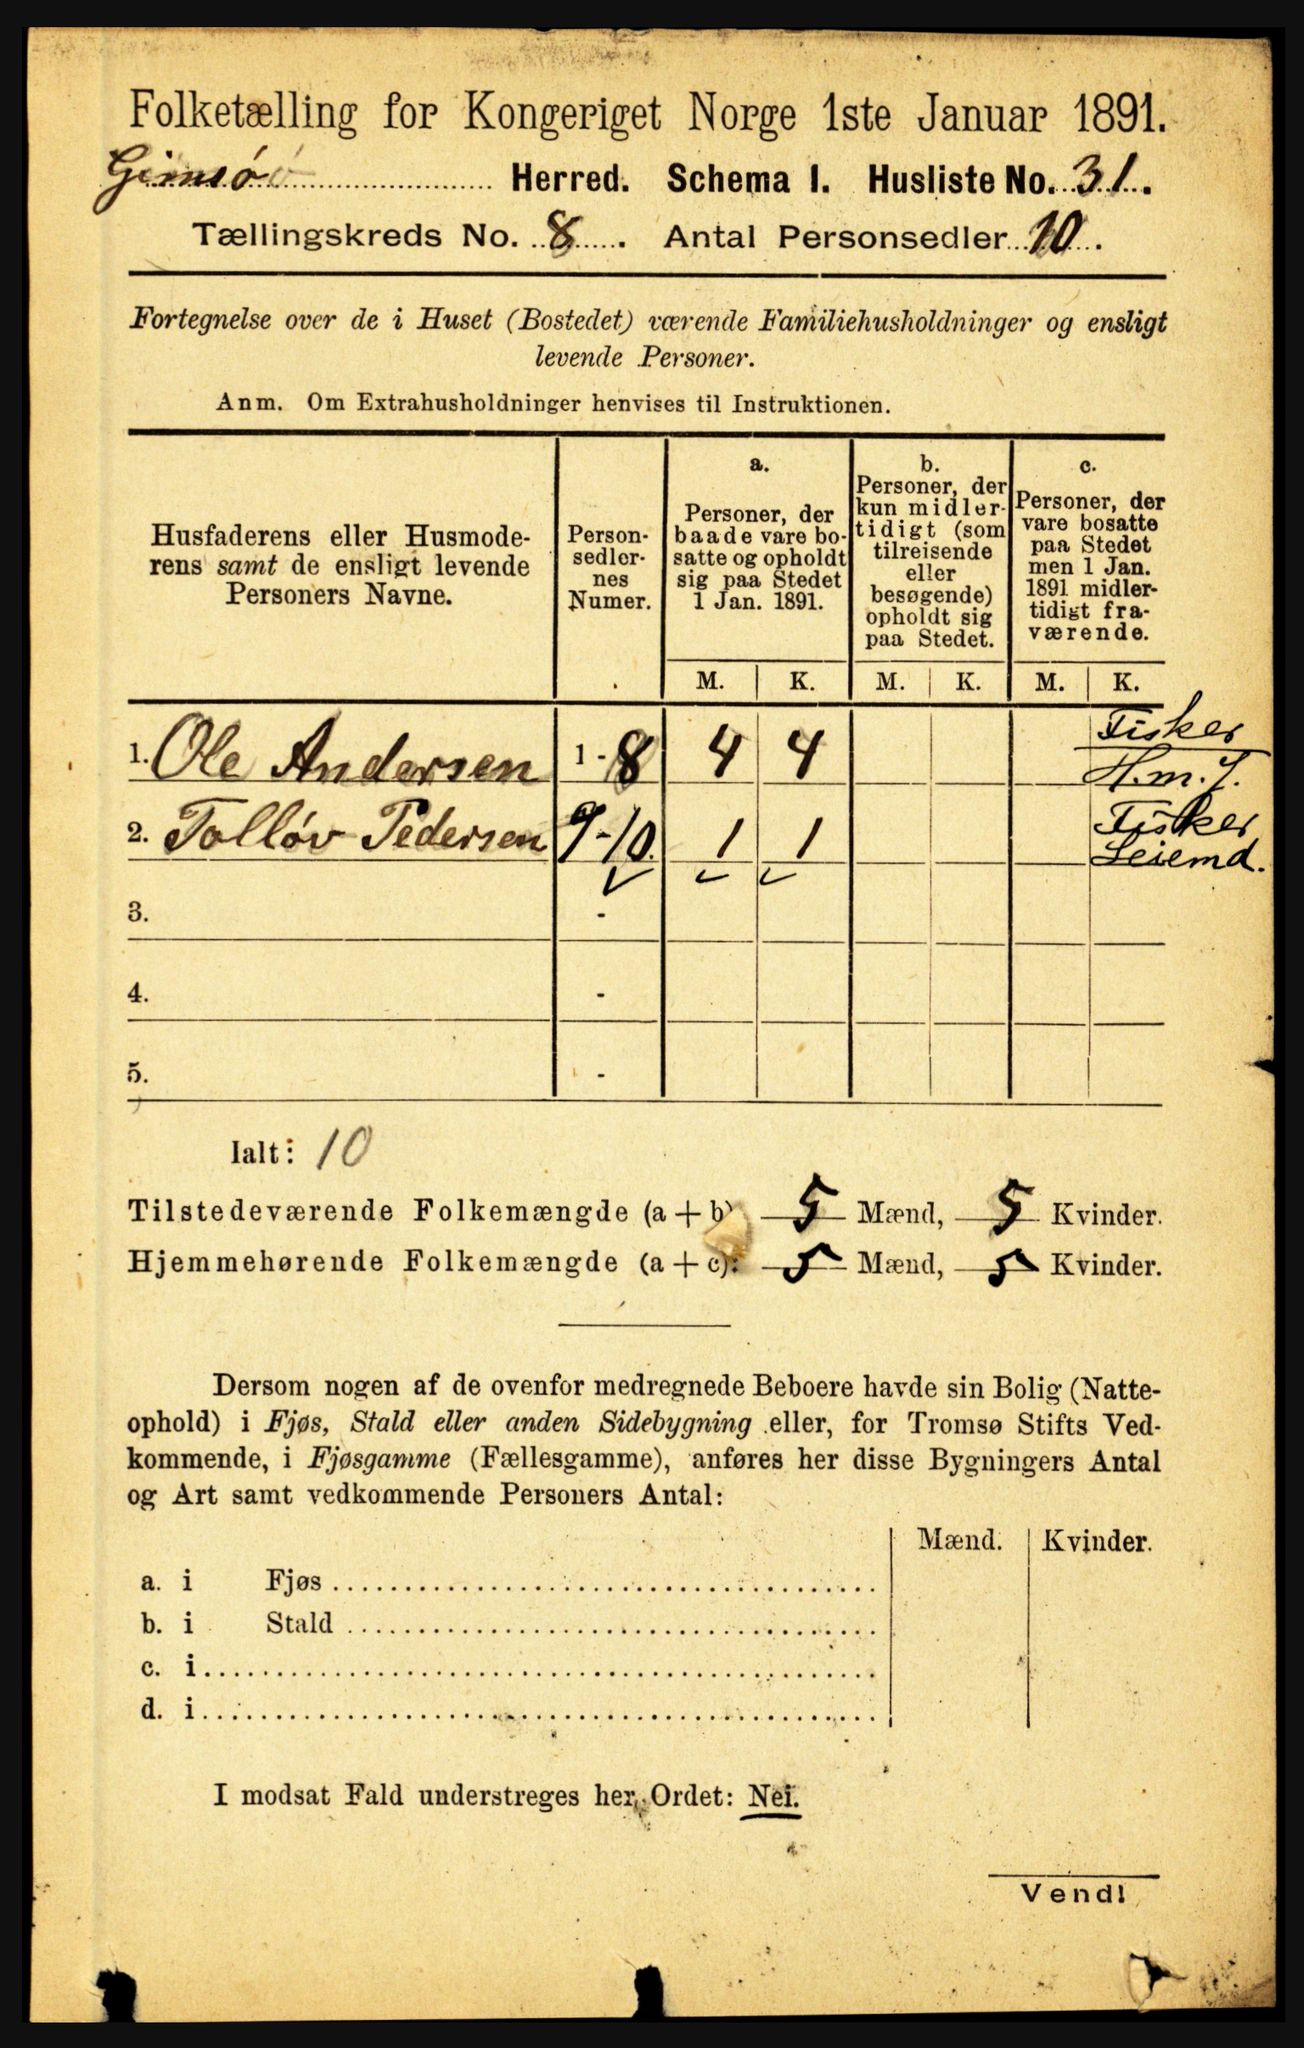 Folketælling for Kongeriget Norge 1ste Januar 1891.
Gimsø Herred. Schema I. Husliste No. 31.
Tællingskreds No. 8. Antal Personsedler 10.
Fortegnelse over de i Huset (Bostedet) værende Familiehusholdninger og ensligt
levende Personer.
Anm. Om Extrahusholdninger henvises til Instruktionen.
Husfaderens eller Husmode-
rens samt de ensligt levende
Personers Navne.
Person-
sedler-
nes
Numer.
a.
Personer, der
baade vare bo-
satte og opholdt
sig paa Stedet
1 Jan. 1891.
b.
Personer, der
kun midler-
tidigt (som
tilreisende
eller
besøgende)
opholdt sig
paa Stedet.
c.
Personer, der
vare bosatte
paa Stedet
men 1 Jan.
1891 midler-
tidigt fra-
værende.
M. K. M. K. M. K.
1. Ole Andersen 1 - 8 4 4 Fisker
H.m.J.
2. Tolløv Pedersen 9-10. 1 1 Fisker
Leiemd.
3. -
4. -
5. -
Ialt: 10
Tilstedeværende Folkemængde (a + b) 5 Mænd, 5 Kvinder.
Hjemmehørende Folkemængde (a + c): 5 Mænd, 5 Kvinder.
Dersom nogen af de ovenfor medregnede Beboere havde sin Bolig (Natte-
ophold) i Fjøs, Stald eller anden Sidebygning eller, for Tromsø Stifts Ved-
kommende, i Fjøsgamme (Fællesgamme), anføres her disse Bygningers Antal
og Art samt vedkommende Personers Antal:
Mænd. Kvinder.
a. i Fjøs
b. i Stald
c. i
d. i
I modsat Fald understreges her Ordet: Nei.
Vend!